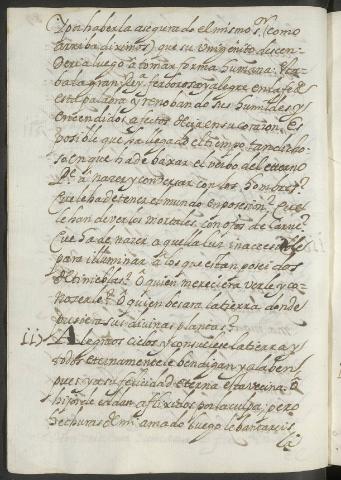 Y por haberla asegurado el mismo Sr. (como
arriba diximos) que su Unigenito descen-
deria luego a tomar forma humana. Esta-
ba la gran Reyna ferborosa y alegre en la fe de
esta palabra y renobando sus humildes y
encendidos afectos decia en su corazon. Es
posible que ha llegado el tiempo tan dicho-
so en que ha de baxar el Verbo del eterno
Pe. a nazer y conversar con los hombres?
Que le ha de tener el mundo en posesion? Que
le han de ver los mortales con ojos de carne?
Que ha de nazer aquella luz inacessible
para illuminar a los que estan poseidos
de tinieblas? O quien mereciera verle y co-
nozerle? O quien besara la tierra donde
pusiera sus divinas plantas?
11) Alegraos cielos y consuelese la tierra y
todos eternamente le bendigan y alaben
pues ya su felicidad eterna esta vezina. O
hijos de Adan aflixidos por la culpa, pero
hechuras de mi amado luego lebantareis
la